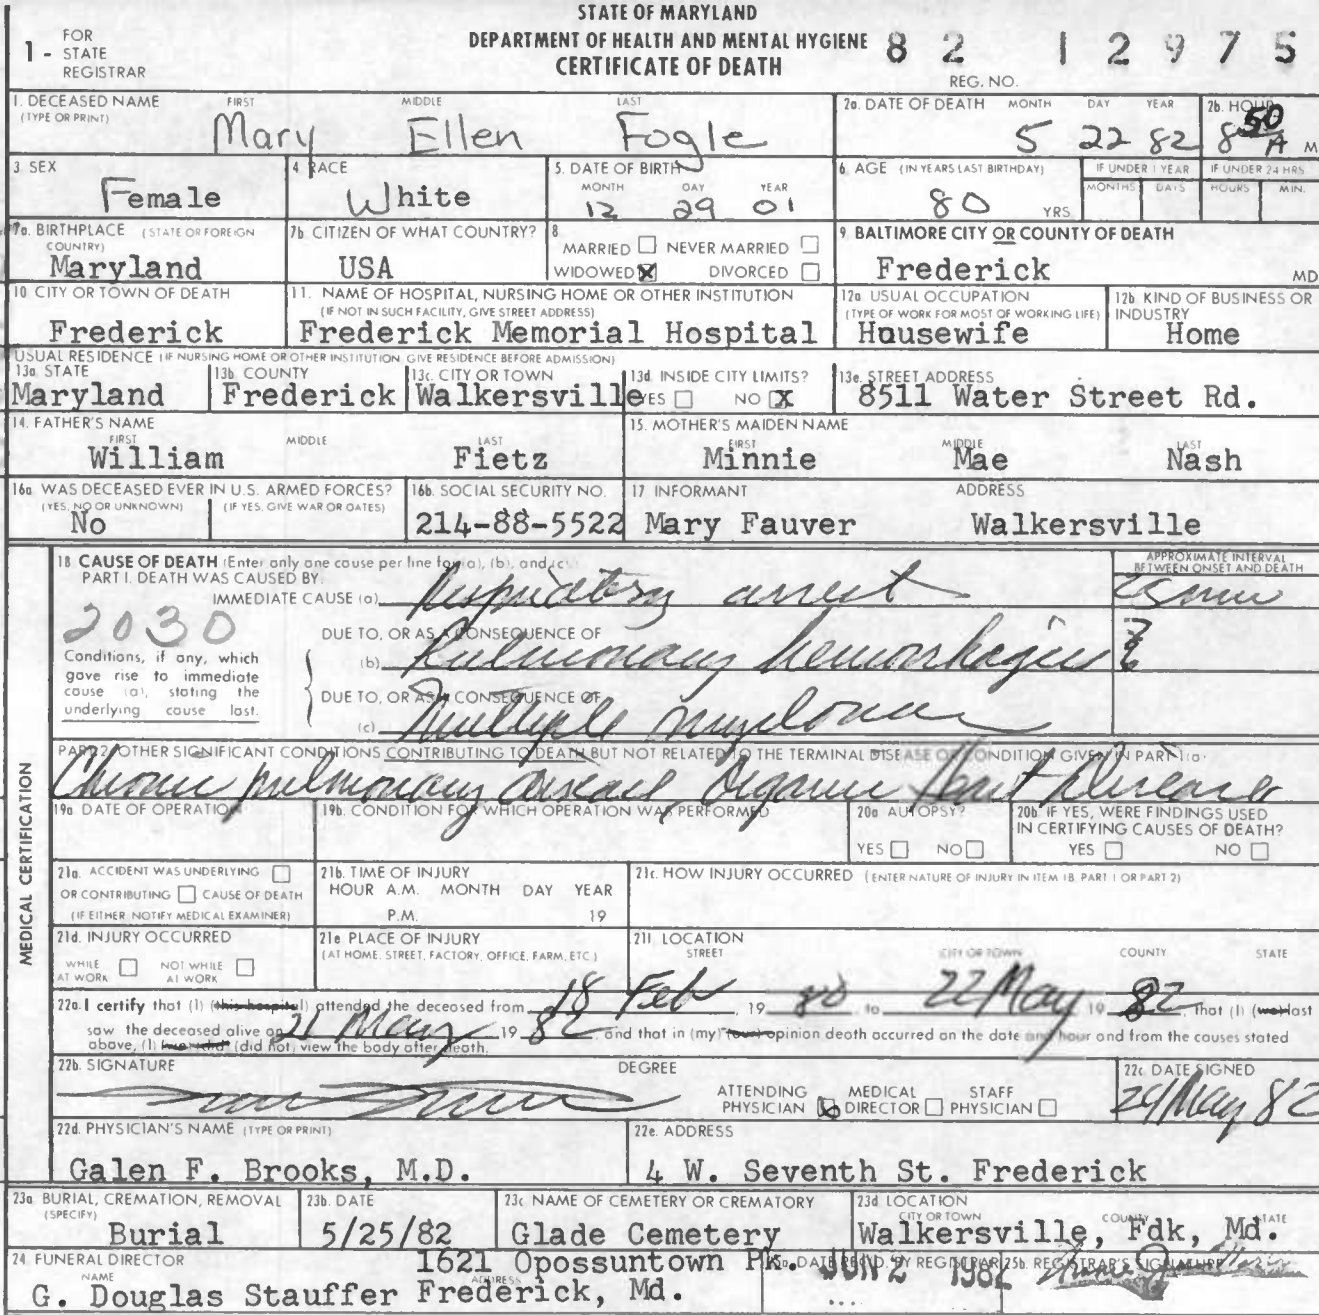 STATE OF MARYLAND
DEPARTMENT OF HEALTH AND MENTAL HYGIENE
CERTIFICATE OF DEATH
1 - FOR STATE REGISTRAR
82 12975
REG. NO.
1. DECEASED NAME (TYPE OR PRINT) FIRST MIDDLE LAST
Mary Ellen Fogle
2a. DATE OF DEATH MONTH DAY YEAR
5 22 82
2b. HOUR
8 50 A M
3 SEX
Female
4. RACE
White
5. DATE OF BIRTH MONTH DAY YEAR
12 29 01
6. AGE (IN YEARS LAST BIRTHDAY)
80 YRS
IF UNDER 1 YEAR MONTHS DAYS
IF UNDER 24 HRS HOURS MIN.
7a. BIRTHPLACE (STATE OR FOREIGN COUNTRY)
Maryland
7b. CITIZEN OF WHAT COUNTRY?
USA
8. MARRIED NEVER MARRIED
WIDOWED X DIVORCED
9. BALTIMORE CITY OR COUNTY OF DEATH
Frederick MD
10 CITY OR TOWN OF DEATH
Frederick
11. NAME OF HOSPITAL, NURSING HOME OR OTHER INSTITUTION
(IF NOT IN SUCH FACILITY, GIVE STREET ADDRESS)
Frederick Memorial Hospital
12a USUAL OCCUPATION
(TYPE OF WORK FOR MOST OF WORKING LIFE)
Housewife
12b KIND OF BUSINESS OR INDUSTRY
Home
USUAL RESIDENCE (IF NURSING HOME OR OTHER INSTITUTION, GIVE RESIDENCE BEFORE ADMISSION)
13a. STATE
Maryland
13b COUNTY
Frederick
13c. CITY OR TOWN
Walkersville
13d. INSIDE CITY LIMITS?
YES NO X
13e. STREET ADDRESS
8511 Water Street Rd.
14. FATHER'S NAME FIRST MIDDLE LAST
William Fietz
15. MOTHER'S MAIDEN NAME FIRST MIDDLE LAST
Minnie Mae Nash
16a WAS DECEASED EVER IN U.S. ARMED FORCES?
(YES, NO OR UNKNOWN) (IF YES, GIVE WAR OR DATES)
No
16b. SOCIAL SECURITY NO.
214-88-5522
17 INFORMANT ADDRESS
Mary Fauver Walkersville
MEDICAL CERTIFICATION
18 CAUSE OF DEATH (Enter only one cause per line for (a), (b), and (c).)
APPROXIMATE INTERVAL BETWEEN ONSET AND DEATH
PART I. DEATH WAS CAUSED BY:
IMMEDIATE CAUSE (a) Respiratory arrest
2030
DUE TO, OR AS A CONSEQUENCE OF
(b) Pulmonary hemorhagies
Conditions, if any, which gave rise to immediate cause (a), stating the underlying cause last.
DUE TO, OR AS A CONSEQUENCE OF
(c) Multiple myeloma
PART 2. OTHER SIGNIFICANT CONDITIONS CONTRIBUTING TO DEATH BUT NOT RELATED TO THE TERMINAL DISEASE OR CONDITION GIVEN IN PART 1(a)
Chronic pulmonary disease Organic Heart Disease
19a DATE OF OPERATION
19b. CONDITION FOR WHICH OPERATION WAS PERFORMED
20a AUTOPSY?
YES NO
20b IF YES, WERE FINDINGS USED IN CERTIFYING CAUSES OF DEATH?
YES NO
21a. ACCIDENT WAS UNDERLYING
OR CONTRIBUTING CAUSE OF DEATH
(IF EITHER NOTIFY MEDICAL EXAMINER)
21b. TIME OF INJURY
HOUR A.M. MONTH DAY YEAR
P.M. 19
21c. HOW INJURY OCCURRED (ENTER NATURE OF INJURY IN ITEM 18 PART 1 OR PART 2)
21d. INJURY OCCURRED
WHILE AT WORK NOT WHILE AT WORK
21e PLACE OF INJURY
(AT HOME, STREET, FACTORY, OFFICE, FARM, ETC.)
21f. LOCATION STREET CITY OR TOWN COUNTY STATE
22a. I certify that (I) (this hospital) attended the deceased from 18 Feb, 19 80 to 22 May 19 82, that (I) (we) last
saw the deceased alive on 21 May 19 82, and that in (my) (our) opinion death occurred on the date and hour and from the causes stated
above, (I) (we) (did) (did not) view the body after death.
22b. SIGNATURE DEGREE
ATTENDING PHYSICIAN MEDICAL DIRECTOR STAFF PHYSICIAN
22c DATE SIGNED
24 May 82
22d. PHYSICIAN'S NAME (TYPE OR PRINT)
Galen F. Brooks, M.D.
22e. ADDRESS
4 W. Seventh St. Frederick
23a BURIAL, CREMATION, REMOVAL (SPECIFY)
Burial
23b. DATE
5/25/82
23c NAME OF CEMETERY OR CREMATORY
Glade Cemetery
23d LOCATION CITY OR TOWN COUNTY STATE
Walkersville, Fdk, Md.
24 FUNERAL DIRECTOR
NAME ADDRESS
1621 Opossuntown Pk.
G. Douglas Stauffer Frederick, Md.
25a. DATE REC'D. BY REGISTRAR
JUN 2 1982
25b. REGISTRAR'S SIGNATURE